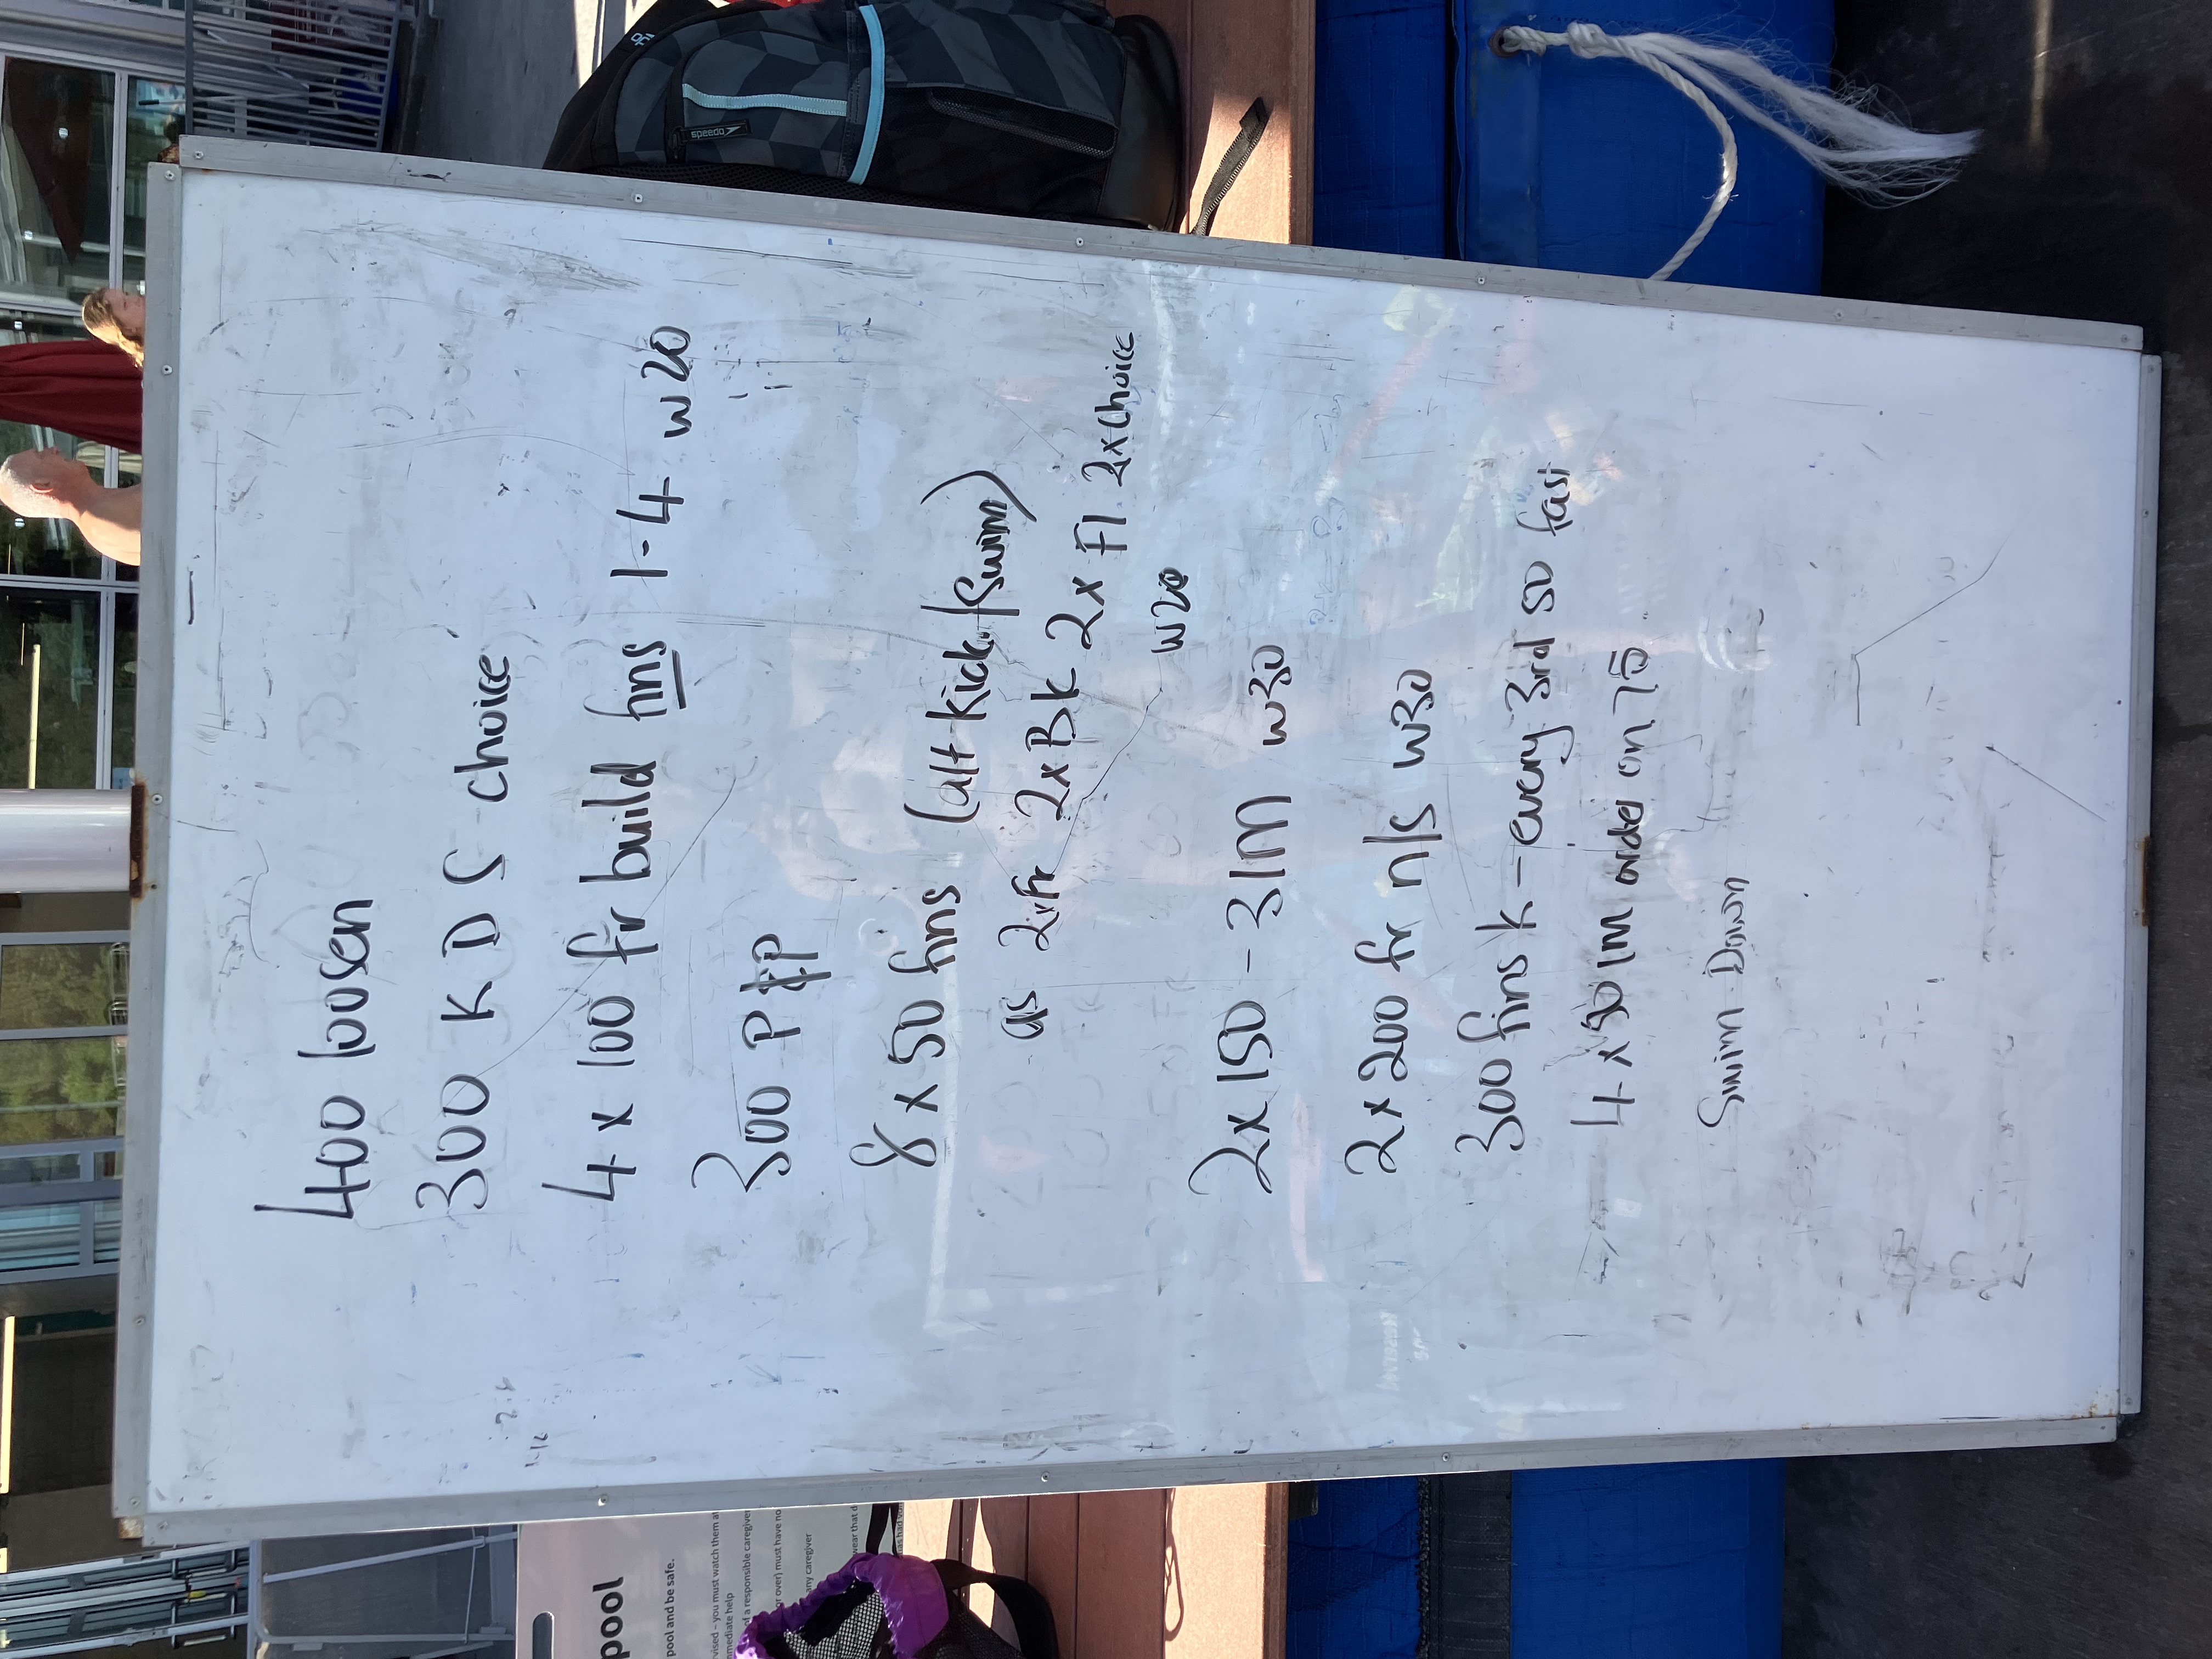 400 loosen
300 K D S choice
4 x 100 fr build fins 1-4 w20
300 P
8 x 50 fins (alt kick/swim)
as 2xfr 2xBK 2x Fl 2xchoice
w20
2x 150 - 3IM w30
2x 200 fr n/s w30
300 fins K - every 3rd 50 fast
4 x 50 IM order on 75
Swim Down
speedo
pool
pool and be safe.
vised – you must watch them at
mmediate help
of a responsible caregiver
or over) must have no
any caregiver
wear that d